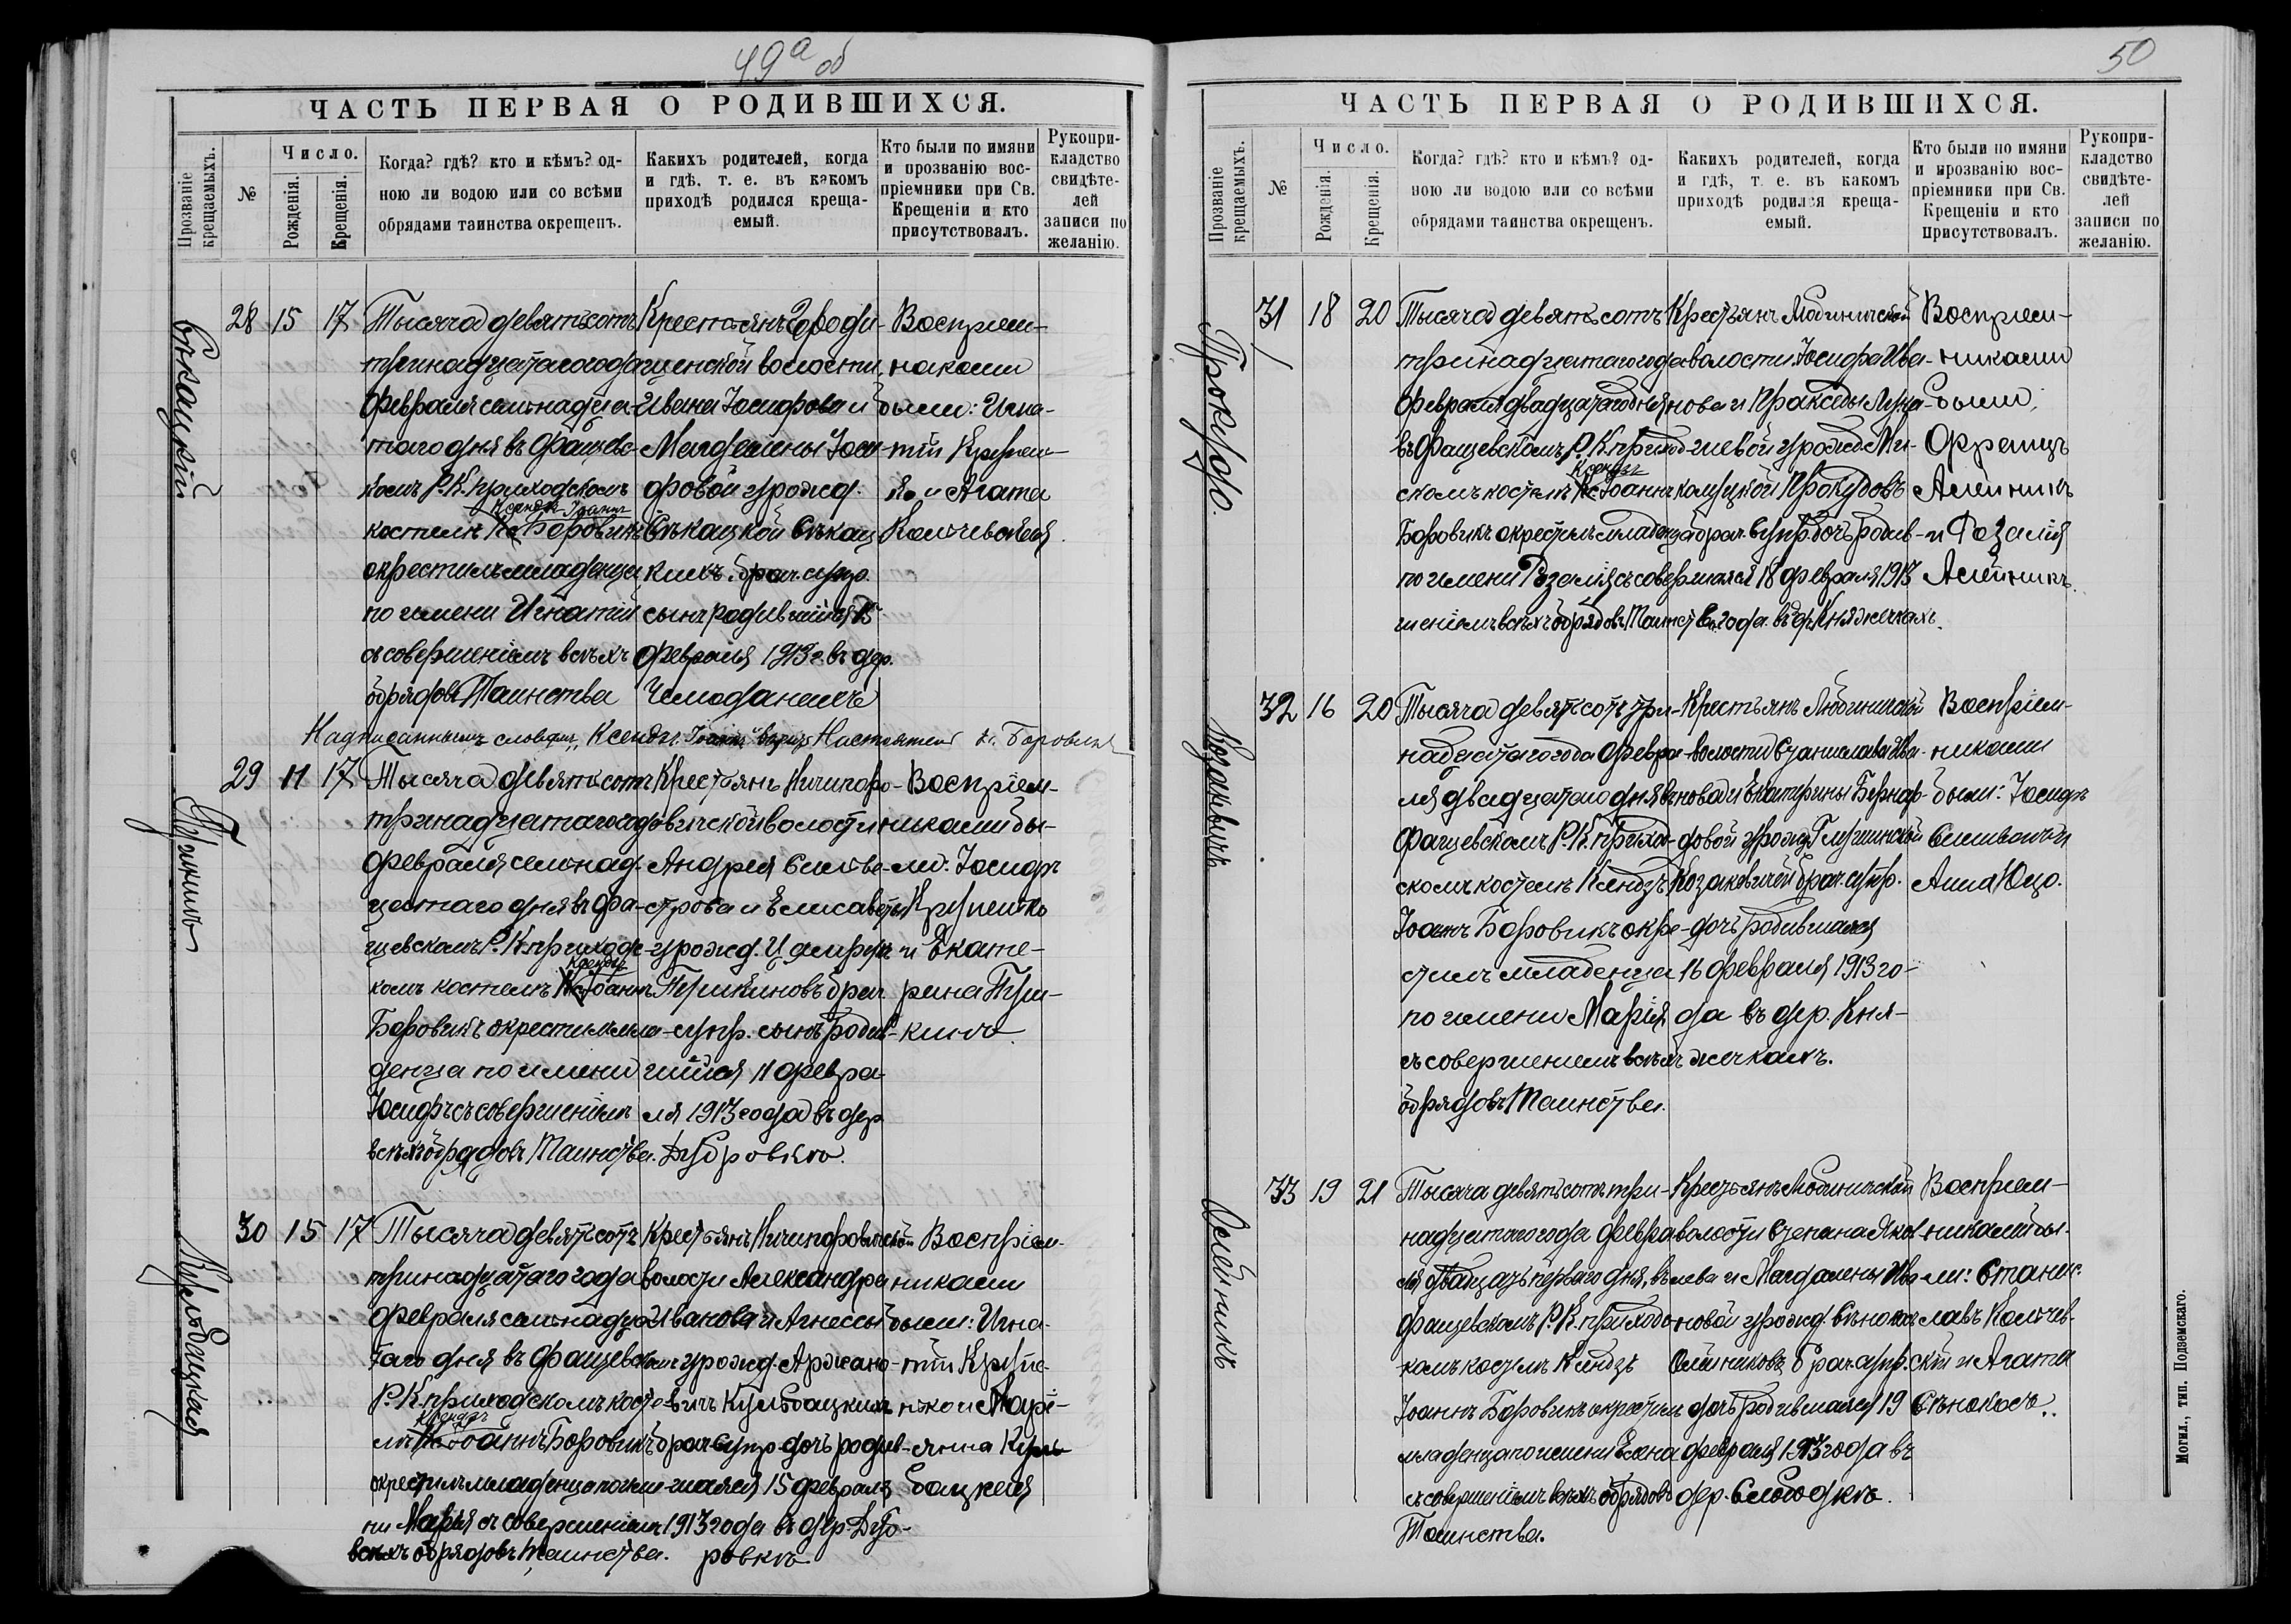 49а об
ЧАСТЬ ПЕРВАЯ О РОДИВШИХСЯ.
Прозваніе крещаемыхъ.
№
Число.
Рожденія.
Крещенія.
Когда? гдѣ? кто и кѣмъ? од-
ною ли водою или со всѣми
обрядами таинства окрещенъ.
Какихъ родителей, когда
и гдѣ, т. е. въ какомъ
приходѣ родился креща-
емый.
Кто были по имяни
и прозванію вос-
пріемники при Св.
Крещеніи и кто
присутствовалъ.
Рукопри-
кладство
свидѣте-
лей
записи по
желанію.
28 15 17
Тысяча девятьсотъ
тринадцатаго года
февраля семнадца-
таго дня въ Фащевс-
комъ Р. К. приходскомъ
Ксендзъ Іоаннъ
костелѣ Боровикъ
окрестилъ младенца
по имени Игнатій
съ совершеніемъ всѣхъ
обрядовъ Таинства
Крестьянъ Городи-
щенской волости
Ивана Іосифова и
Магдалены Іоси-
фовой урожд.
брач. супр.
сынъ родившійся 15
февраля 1913 г. въ дер.
Чемоданахъ
Воспріем-
никами
были: Игна-
тій
и Агата
Надписаннымъ словамъ "Ксендзъ Іоаннъ" вѣрить Настоятель Боровикъ
Пушкинъ
29 11 17
Тысяча девятьсотъ
тринадцатаго года
февраля семнад-
цатаго дня въ Фа-
щевскомъ Р. К. приходс-
Ксендзъ
комъ костелѣ Іоаннъ
Боровикъ окрестилъ мла-
денца по имени
Іосифъ съ совершеніемъ
всѣхъ обрядовъ Таинства.
Крестьянъ Ничипоро-
вичской волости
Андрея Сильве-
строва и Елисаветы
урожд.
Пушкиновъ брач.
супр. сынъ родив-
шійся 11 февра-
ля 1913 года въ дер.
Дубровкѣ.
Воспріем-
никами бы-
ли: Іосифъ
и Екате-
рина Пуш-
кина.
Кульбацкая
30 15 17
Тысяча девятьсотъ
тринадцатаго года
февраля семнадца-
таго дня въ Фащевскомъ
Р. К. приходскомъ косте-
Ксендзъ
лѣ Іоаннъ Боровикъ
окрестилъ младенца по име-
ни Марія съ совершеніемъ
всѣхъ обрядовъ Таинства.
Крестьянъ Ничипоровичской
волости Александра
Иванова и Агнессы
урожд. Аржано-
вичъ Кульбацкихъ
брач. супр. дочь родив-
шаяся 15 февраля
1913 года въ дер. Дуб-
ровкѣ.
Воспріем-
никами
были: Игна-
тій
и Марі-
анна Куль-
бацкая
50
ЧАСТЬ ПЕРВАЯ О РОДИВШИХСЯ.
Прозваніе крещаемыхъ.
№
Число.
Рожденія.
Крещенія.
Когда? гдѣ? кто и кѣмъ? од-
ною ли водою или со всѣми
обрядами таинства окрещенъ.
Какихъ родителей, когда
и гдѣ, т. е. въ какомъ
приходѣ родился креща-
емый.
Кто были по имяни
и прозванію вос-
пріемники при Св.
Крещеніи и кто
присутствовалъ.
Рукопри-
кладство
свидѣте-
лей
записи по
желанію.
31 18 20
Тысяча девятьсотъ
тринадцатаго года
февраля двадцатаго дня
въ Фащевскомъ Р. К. приход-
Ксендзъ
скомъ костелѣ Іоаннъ
Боровикъ окрестилъ младенца
по имени Розалія съ совер-
шеніемъ всѣхъ обрядовъ Таинства.
Крестьянъ Любиничской
волости Іосифа Ива-
нова и Пракседы Лука-
шевой урожд.
брач. супр. дочь родив-
шаяся 18 февраля 1913
года въ дер. Княжичахъ.
Воспріем-
никами
были:
Францъ
Алейникъ
и Розалія
Алейникъ.
Козакевичъ
32 16 20
Тысяча девятьсотъ три-
надцатаго года февра-
ля двадцатаго дня въ
Фащевскомъ Р. К. приход-
скомъ костелѣ Ксендзъ
Іоаннъ Боровикъ окре-
стилъ младенца
по имени Марія
съ совершеніемъ всѣхъ
обрядовъ Таинства.
Крестьянъ Любиничской
волости Станислава Ива-
нова и Екатерины Бернар-
довой урожд.
Козакевичей брач. супр.
дочь родившаяся
16 февраля 1913 го-
да въ дер. Кня-
жичахъ.
Воспріем-
никами
были: Іосифъ
и
Анна Юцо.
Олейникъ
33 19 21
Тысяча девятьсотъ три-
надцатаго года февра-
ля двадцать перваго дня, въ
Фащевскомъ Р. К. приходс-
комъ костелѣ Ксендзъ
Іоаннъ Боровикъ окрестилъ
младенца по имени Елена
съ совершеніемъ всѣхъ обрядовъ
Таинства.
Крестьянъ Любиничской
волости Степана Яков-
лева и Магдалены Ива-
новой урожд. Сѣнокосъ
Олейниковъ брач. супр.
дочь родившаяся 19
февраля 1913 года въ
дер. Слободкѣ.
Воспріем-
никами бы-
ли: Станис-
лавъ Колчев-
скій и Агата
Сѣнокосъ.
Могил., тип. Подземскаго.